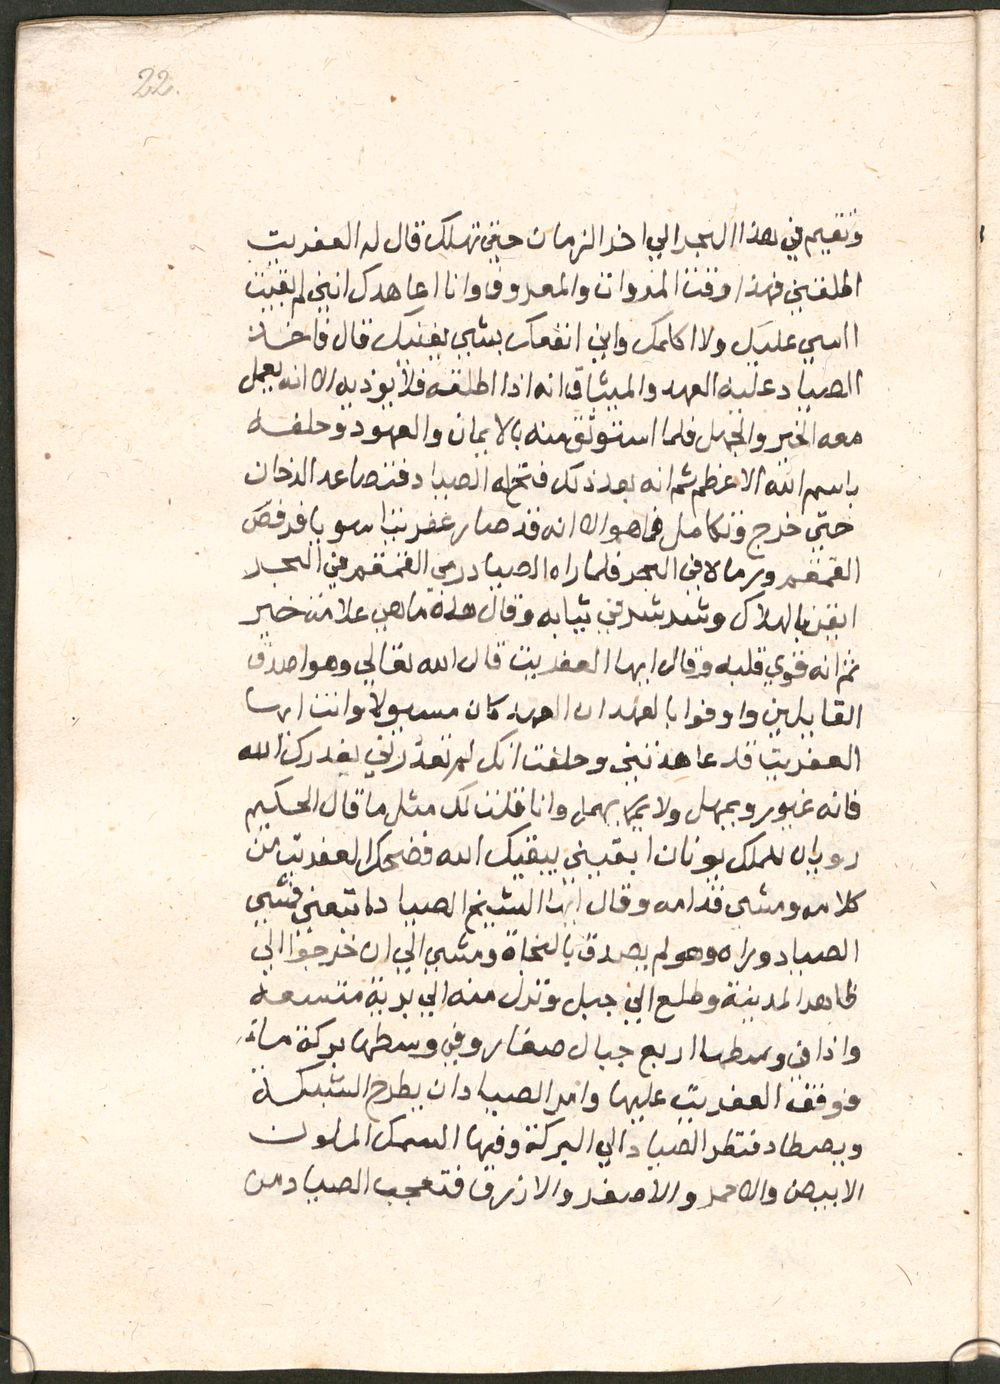 22.
وتقيم في هذا البحر الي اخر الزمان حتي تهلك قال له العفريت
اطلقني فهذا وقت المروات والمعروف وانا اعاهدك انني لم بقيت
اسي عليك ولا اكلمك واني انفعك بشي يغنيك قال فاخذ
الصياد عليه العهد والميثاق انه اذا اطلقه فلا يوذيه الا انه يعمل
معه الخير والجهل فلما استوثق منه بالايمان والعهود وحلفه
باسم الله الاعظم ثم انه بعد ذلك فتح له الصياد فتصاعد الدخان
حتي خرج وتكامل فما هو الا انه قد صار عفريتا سويا فرفص
القمقم ورماه في البحر فلما راه الصياد رمي القمقم في البحر
ايقن بالهلاك وشرشر في ثيابه وقال هذه ما هي علامة خير
ثم انه قوي قلبه وقال ايها العفريت قال الله تعالي وهو اصدق
القايلين واوفوا بالعهد ان العهد كان مسيولا وانت ايها
العفريت قد عاهدتني وحلفت انك لم تغدر بي يغدرك الله
فانه غيور ويمهل ولا يهمل وانا قلت لك مثل ما قال الحكيم
رويان للملك يونان ابقيني يبقيك الله فضحك العفريت من
كلامه ومشي قدامه وقال ايها الشيخ الصياد اتبعني فمشي
الصياد وراه وهو لم يصدق بالنجاة ومشي الي ان خرجوا الي
ظاهر المدينة وطلع الي جبل ونزل منه الي برية متسعه
واذا في وسطها اربع جبال صغار وفي وسطها بركة ماء
فوقف العفريت عليها وامر الصياد ان يطرح الشبكة
ويصطاد فنظر الصياد الي البركة وفيها السمك الملون
الابيض والاحمر والاصفر والازرق فتعجب الصياد من